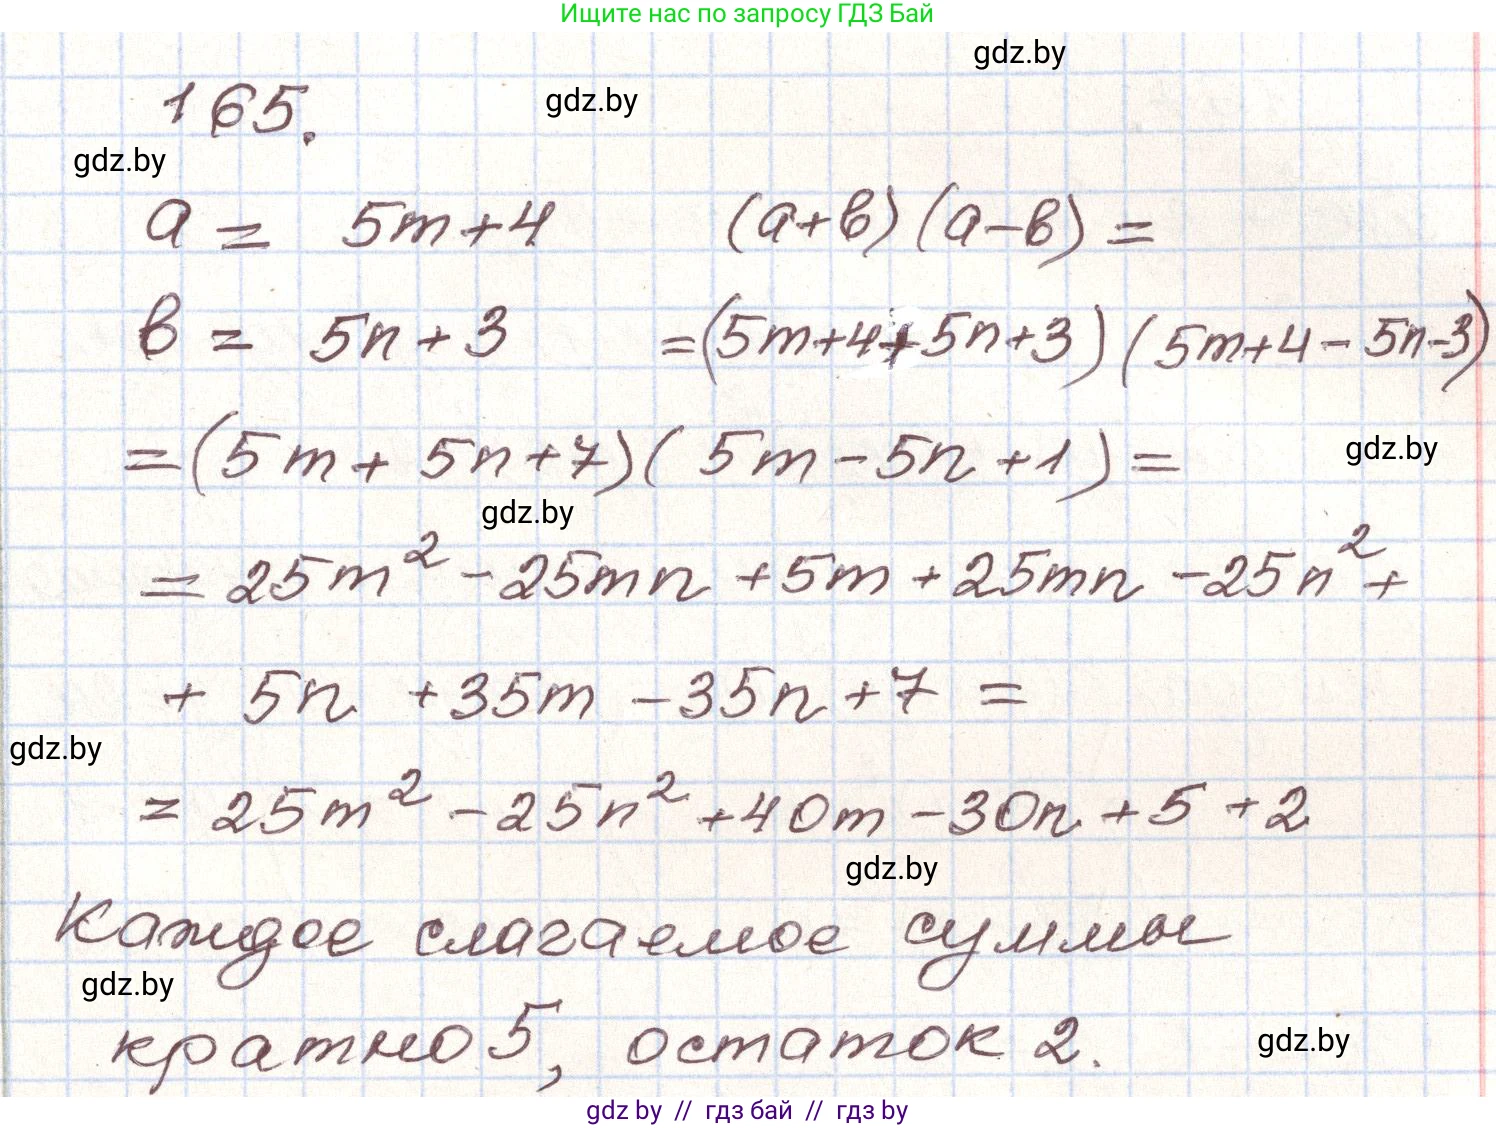 Ищите нас по запросу ГДЗ Бай
gdz.by
165.
gdz.by
gdz.by
a = 5m+4 (a+b)(a-b) =
b = 5n+3 =(5m+4+5n+3)(5m+4-5n-3)
=(5m+5n+7)(5m-5n+1)=
gdz.by
gdz.by
=25m²-25mn+5m+25mn-25n²+
+5n+35m-35n+7=
gdz.by
=25m²-25n²+40m-30n+5+2
gdz.by
Каждое слагаемое суммы
gdz.by
кратно 5, остаток 2.
gdz.by
gdz by // гдз бай // гдз by